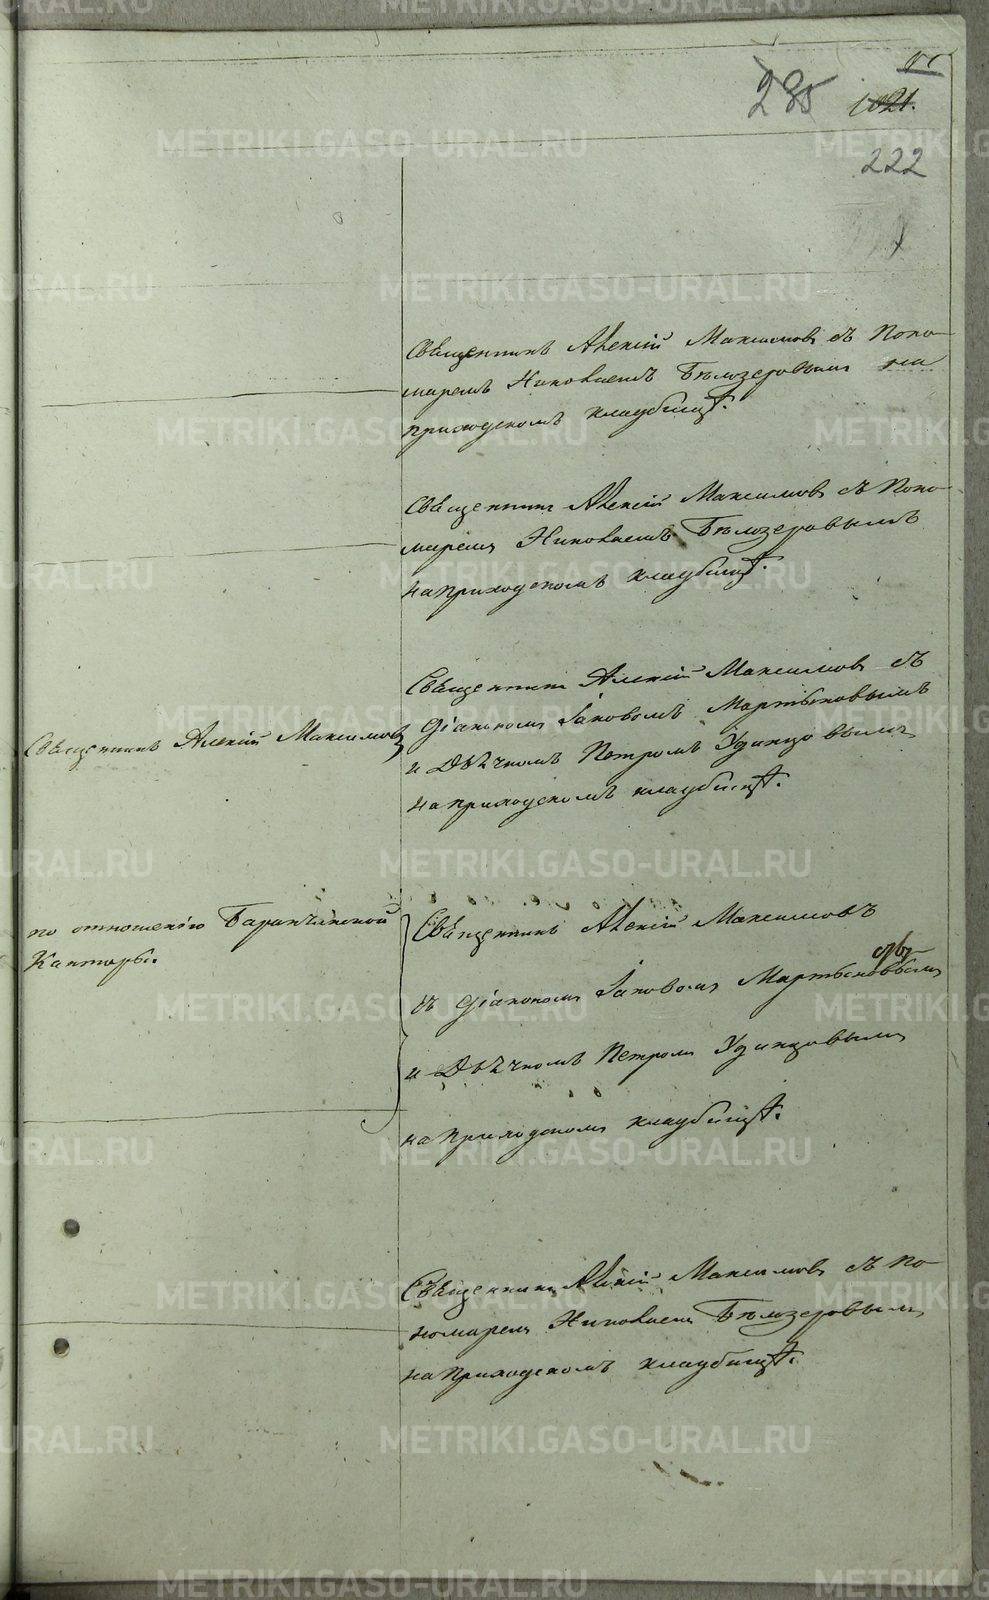 285
1021.
222
Священникъ Алексій Максимовъ съ Поно-
маремъ Николаемъ Бѣлозеровымъ на
приходскомъ кладбищѣ.
Священникъ Алексій Максимовъ съ Поно-
маремъ Николаемъ Бѣлозеровымъ
на приходскомъ кладбищѣ.
Священникъ Алексій Максимовъ съ
діакономъ Іаковомъ Мартыновымъ
и Дьячкомъ Петромъ Удинцовымъ
на приходскомъ кладбищѣ.
Священникъ Алексій Максимовъ
по отношенію Баранчинской
Канторы.
Священникъ Алексій Максимовъ
съ діакономъ Іаковомъ Мартыновымъ
и Дьячкомъ Петромъ Удинцовымъ
на приходскомъ кладбищѣ.
Священникъ Алексій Максимовъ съ По-
номаремъ Николаемъ Бѣлозеровымъ
на приходскомъ кладбищѣ.
METRIKI.GASO-URAL.RU